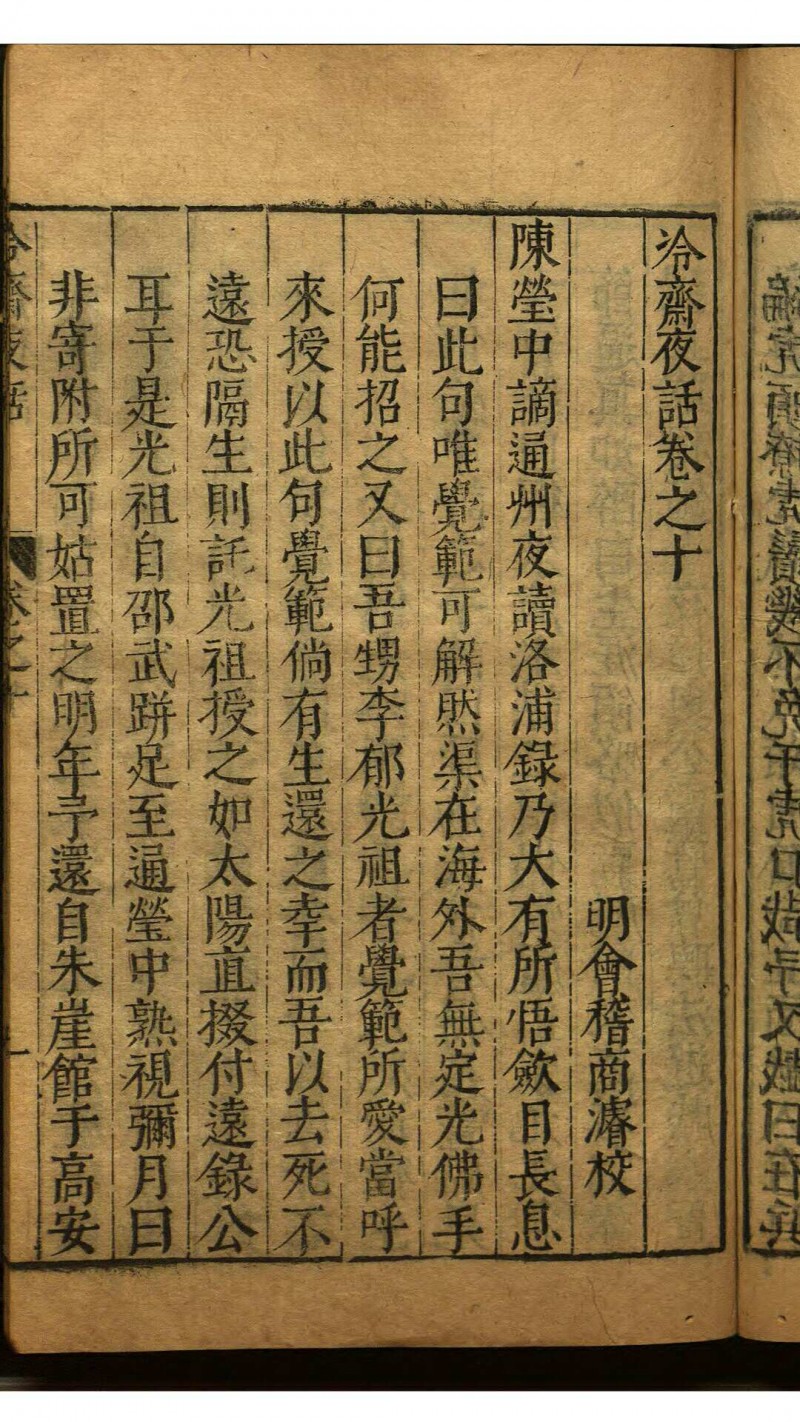 冷齋夜話卷之十
明會稽商濬校
陳瑩中謫通州夜讀洛浦錄乃大有所悟歛目長息
曰此句唯覺範可解然渠在海外吾無定光佛手
何能招之又曰吾甥李郁光祖者覺範所愛當呼
來授以此句覺範倘有生還之幸而吾以去死不
遠恐隔生則託光祖授之如太陽直掇付遠錄公
耳于是光祖自邵武跰足至通瑩中熟視彌月曰
非寄附所可姑置之明年予還自朱崖館于高安
冷齋夜話 卷之十 一